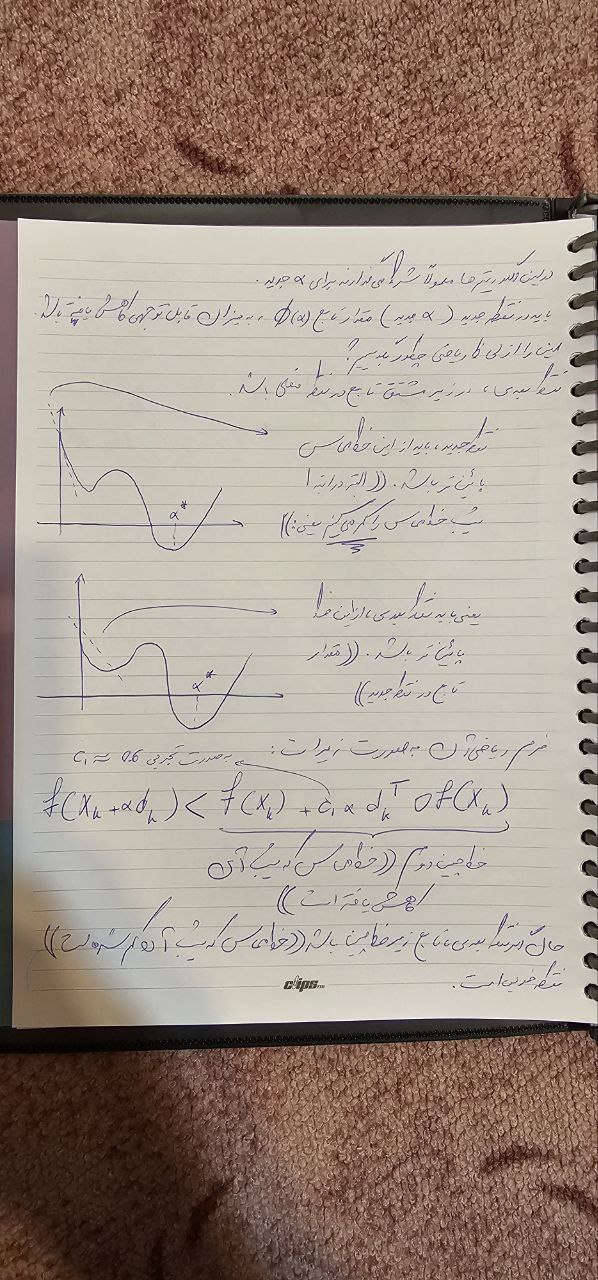 در این الگوریتم‌ها معمولاً شرط می‌گذارند برای α جدید.
باید در نقطه جدید (α جدید) مقدار تابع φ(α)، به میزان قابل توجهی کاهش یافته باشد.
این را از لحاظ ریاضی چطور بگوییم؟
نقطه بعدی، در زیر مشتق تابع در نقطه فعلی باشد.
نقطه جدید، باید از این خط مماس
پائین‌تر باشد. ((البته در ابتدا
شیب خط مماس را کم می‌کنیم یعنی:))
α*
یعنی باید نقطه بعدی، از این خط
پائین‌تر باشد. ((مقدار
تابع در نقطه جدید))
α*
فرم ریاضی آن به صورت زیر است:
به صورت تجربی C₁ ≈ 0.6
f(x_k + αd_k) < f(x_k) + c₁ α d_k^T ∇f(x_k)
خط چین دوم ((خط مماس که شیب آن
کاهش یافته است))
حال اگر نقطه بعدی تابع زیر خط چین باشد ((خط مماس که شیب آن کم شده است))
نقطه خوبی است.
clips